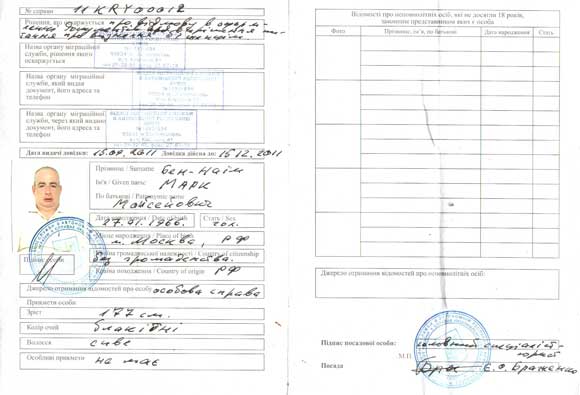 № справи 11KRY00012
Рішення, що оскаржується про відмову в оформ-
Назва органу міграційної
служби, рішення якого
оскаржується
Назва органу міграційної
служби, який видав
документ, його адреса та
телефон
Назва органу міграційної
служби, через який видано
документ, його адреса та
телефон
Дата видачі довідки: 15.09.2011 Довідка дійсна до: 15.12.2011
Прізвище / Surname Бен-Наїм
Ім'я / Given names МАРК
По батькові / Patronymic name
Мойсейович
Дата народження / Date of birth Стать / Sex
27.91.1966. чол.
Місце народження / Place of birth
м. Москва, РФ
Країна громадянської належності / Country of citizenship
без громадянства.
Країна походження / Country of origin РФ
Підпис особи
Джерело отримання відомостей про особу особова справа
Прикмети особи
Зріст 177 см.
Колір очей блакитні
Волосся сиве
Особливі прикмети не має
Відомості про неповнолітніх осіб, які не досягли 18 років,
законним представником яких є особа
Фото Прізвище, ім'я, по батькові Дата народження Стать
Джерело отримання відомостей про неповнолітніх осіб:
Підпис посадової особи: головний спеціаліст-
М.П. юрист
Посада Є.О. Браженко